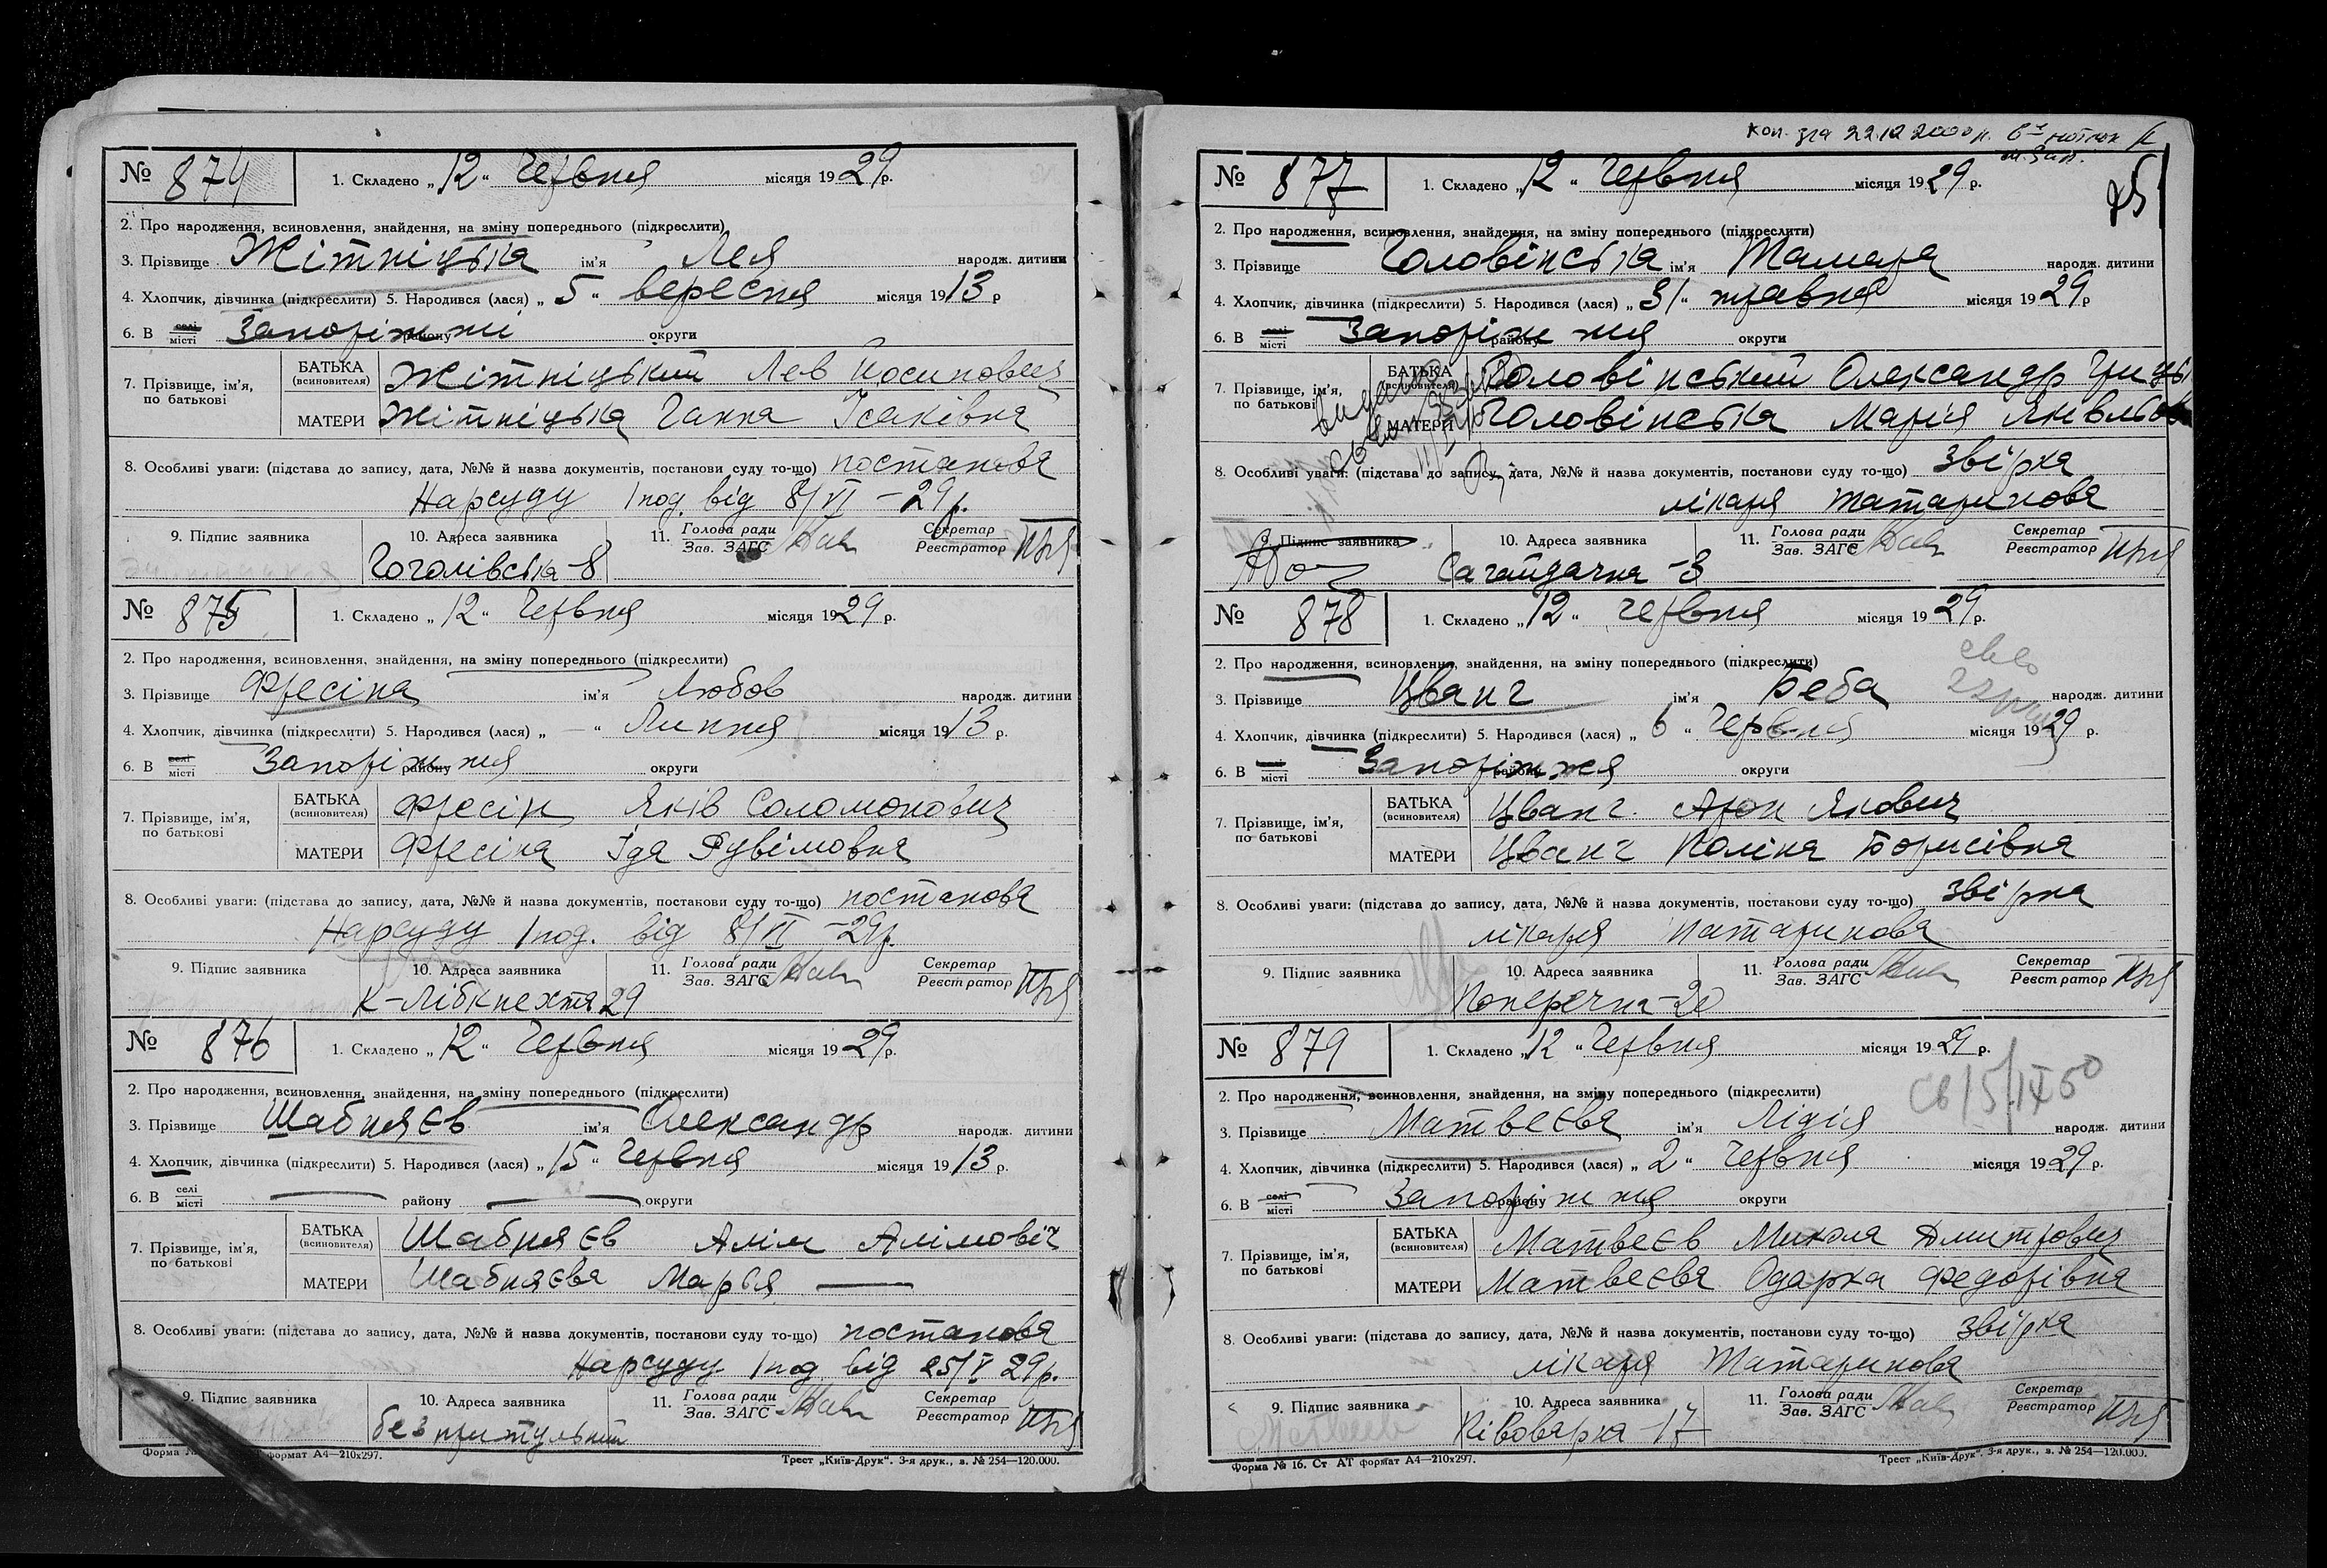 № 874 1. Складено „12“ Червня місяця 1929 р.
2. Про народження, всиновлення, знайдення, на зміну попереднього (підкреслити)
3. Прізвище Жітніцька ім'я Лея народж. дитини
4. Хлопчик, дівчинка (підкреслити) 5. Народився (лася) „5“ вересня місяця 1913 р
6. В селі місті Запоріжжі району округи
7. Прізвище, ім'я, по батькові
БАТЬКА (всиновителя) Жітніцький Лев Йосипович
МАТЕРИ Жітніцька Ганна Ісаківна
8. Особливі уваги: (підстава до запису, дата, №№ й назва документів, постанови суду то-що) постанова
Нарсуду 1 под. від 8/VI – 29 р.
9. Підпис заявника 10. Адреса заявника 11. Голова ради Зав. ЗАГС Секретар Реєстратор
Гоголівська – 8
№ 875 1. Складено „12“ Червня місяця 1929 р.
2. Про народження, всиновлення, знайдення, на зміну попереднього (підкреслити)
3. Прізвище Фресіна ім'я Любов народж. дитини
4. Хлопчик, дівчинка (підкреслити) 5. Народився (лася) „ — “ Липня місяця 1913 р.
6. В селі місті Запоріжжя району округи
7. Прізвище, ім'я, по батькові
БАТЬКА (всиновителя) Фресін Яків Соломонович
МАТЕРИ Фресіна Іда Рувімовна
8. Особливі уваги: (підстава до запису, дата, №№ й назва документів, постанови суду то-що) постанова
Нарсуду 1 под. від 8/VI – 29 р.
9. Підпис заявника 10. Адреса заявника 11. Голова ради Зав. ЗАГС Секретар Реєстратор
К-Лібкнехта 29
№ 876 1. Складено „12“ Червня місяця 1929 р.
2. Про народження, всиновлення, знайдення, на зміну попереднього (підкреслити)
3. Прізвище Шабняєв ім'я Олександр народж. дитини
4. Хлопчик, дівчинка (підкреслити) 5. Народився (лася) „15“ Червня місяця 1913 р.
6. В селі місті — району — округи
7. Прізвище, ім'я, по батькові
БАТЬКА (всиновителя) Шабняєв Алім Алімовіч
МАТЕРИ Шабняєва Мар'я —
8. Особливі уваги: (підстава до запису, дата, №№ й назва документів, постанови суду то-що) постанова
Нарсуду 1 под від 25/V 29 р.
9. Підпис заявника 10. Адреса заявника 11. Голова ради Зав. ЗАГС Секретар Реєстратор
безпритульний
Форма формат А4—210x297. Трест „Київ-Друк“. 3-я друк., в. № 254—120.000.
22.12.2000
75
№ 877 1. Складено „12“ Червня місяця 1929 р.
2. Про народження, всиновлення, знайдення, на зміну попереднього (підкреслити)
3. Прізвище Головінська ім'я Тамара народж. дитини
4. Хлопчик, дівчинка (підкреслити) 5. Народився (лася) „31“ травня місяця 1929 р
6. В селі місті Запоріжжя району округи
7. Прізвище, ім'я, по батькові
БАТЬКА (всиновителя) Головінський Олександр
МАТЕРИ Головінська Марія
8. Особливі уваги: (підстава до запису, дата, №№ й назва документів, постанови суду то-що) звірка
лікаря Татаринова
9. Підпис заявника 10. Адреса заявника 11. Голова ради Зав. ЗАГС Секретар Реєстратор
Сагайдачна – 3
№ 878 1. Складено „12“ червня місяця 1929 р.
2. Про народження, всиновлення, знайдення, на зміну попереднього (підкреслити)
3. Прізвище Цванг ім'я Беба народж. дитини
4. Хлопчик, дівчинка (підкреслити) 5. Народився (лася) „6“ Червня місяця 1929 р.
6. В селі місті Запоріжжя району округи
7. Прізвище, ім'я, по батькові
БАТЬКА (всиновителя) Цванг Арон Якович
МАТЕРИ Цванг Поліна Борисівна
8. Особливі уваги: (підстава до запису, дата, №№ й назва документів, постанови суду то-що) звірка
лікаря Татаринова
9. Підпис заявника 10. Адреса заявника 11. Голова ради Зав. ЗАГС Секретар Реєстратор
Поперечна – 20
№ 879 1. Складено „12“ Червня місяця 1929 р.
2. Про народження, всиновлення, знайдення, на зміну попереднього (підкреслити)
3. Прізвище Матвеєва ім'я Лідія народж. дитини
4. Хлопчик, дівчинка (підкреслити) 5. Народився (лася) „2“ Червня місяця 1929 р.
6. В селі місті Запоріжжя району округи
7. Прізвище, ім'я, по батькові
БАТЬКА (всиновителя) Матвеєв Микола Дмитрович
МАТЕРИ Матвеєва Одарка Федорівна
8. Особливі уваги: (підстава до запису, дата, №№ й назва документів, постанови суду то-що) звірка
лікаря Татаринова
9. Підпис заявника 10. Адреса заявника 11. Голова ради Зав. ЗАГС Секретар Реєстратор
Півоварна – 17
Форма № 16. Ст АТ формат А4—210x297. Трест „Київ-Друк“. 3-я друк., в. № 254—120.000.